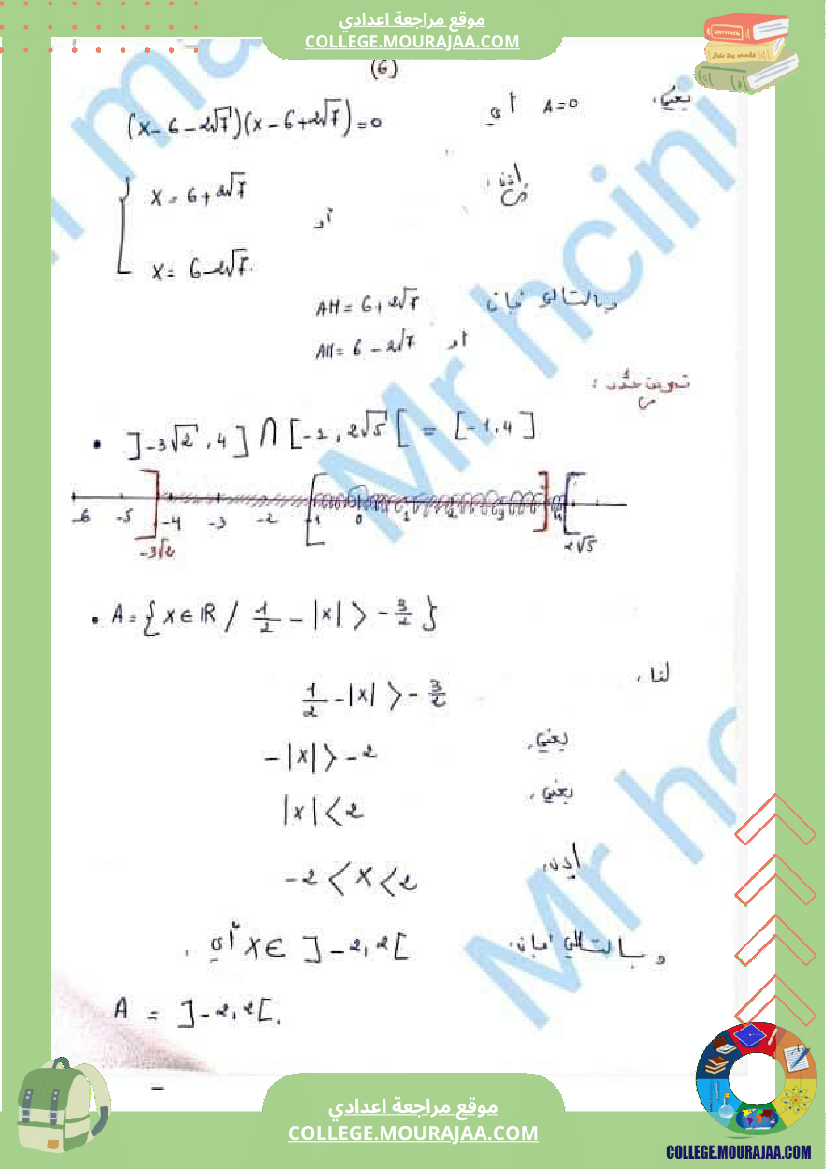 موقع مراجعة اعدادي
COLLEGE.MOURAJAA.COM
(6)
يعني، A=0 أي (x-6-2√7)(x-6+2√7)=0
إذن،
x=6+2√7
أو
x=6-2√7.
وبالتالي فإن AM=6+2√7
أو AM=6-2√7
تمرين عدد :
• ]-3√2,4]∩[-1,2√5[ = [-1,4]
-6 -5 -4 -3 -2 -1 0 1 2 3 4
-3√2 2√5
• A={x∈ℝ / 1/2 - |x| > -3/2}
لنا، 1/2 - |x| > -3/2
يعني، -|x| > -2
يعني، |x| < 2
إذن، -2 < x < 2
وبالتالي فإن، x ∈ ]-2,2[ أي،
A = ]-2,2[.
Mr hcini
Mr hc
موقع مراجعة اعدادي
COLLEGE.MOURAJAA.COM
COLLEGE.MOURAJAA.COM